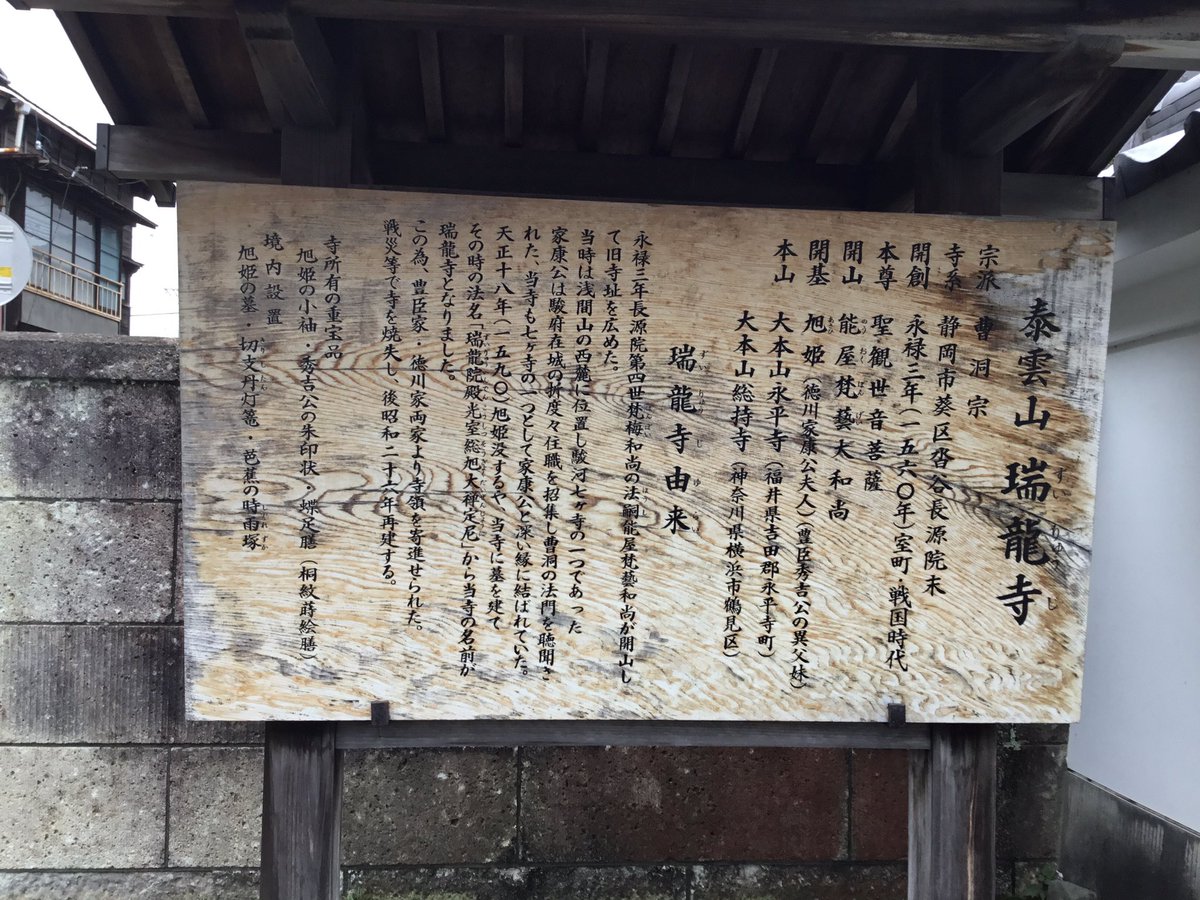 泰雲山 瑞龍寺
宗派 曹洞宗
寺系 静岡市葵区沓谷長源院末
開創 永禄三年(一五六〇年)室町・戦国時代
本尊 聖観世音菩薩
開山 能屋梵藝大和尚
開基 旭姫(徳川家康公夫人)(豊臣秀吉公の異父妹)
本山 大本山永平寺(福井県吉田郡永平寺町)
大本山総持寺(神奈川県横浜市鶴見区)
瑞龍寺由来
永禄三年長源院第四世梵梅和尚の法嗣能屋梵藝和尚が開山し
て旧寺址を広めた。
当時は浅間山の西麓に位置し駿河七ヶ寺の一つであった
家康公は駿府在城の折度々住職を招集し曹洞の法門を聴聞さ
れた、当寺も七ヶ寺の一つとして家康公と深い縁に結ばれていた。
天正十八年(一五九〇)旭姫没するや、当寺に墓を建て
その時の法名「瑞龍院殿光室総旭大禅定尼」から当寺の名前が
瑞龍寺となりました。
この為、豊臣家・徳川家両家より寺領を寄進せられた。
戦災等で寺を焼失し、後昭和二十二年再建する。
寺所有の重宝品
旭姫の小袖・秀吉公の朱印状・蝶足膳(桐紋蒔絵膳)
境内設置
旭姫の墓・切支丹灯篭・芭蕉の時雨塚